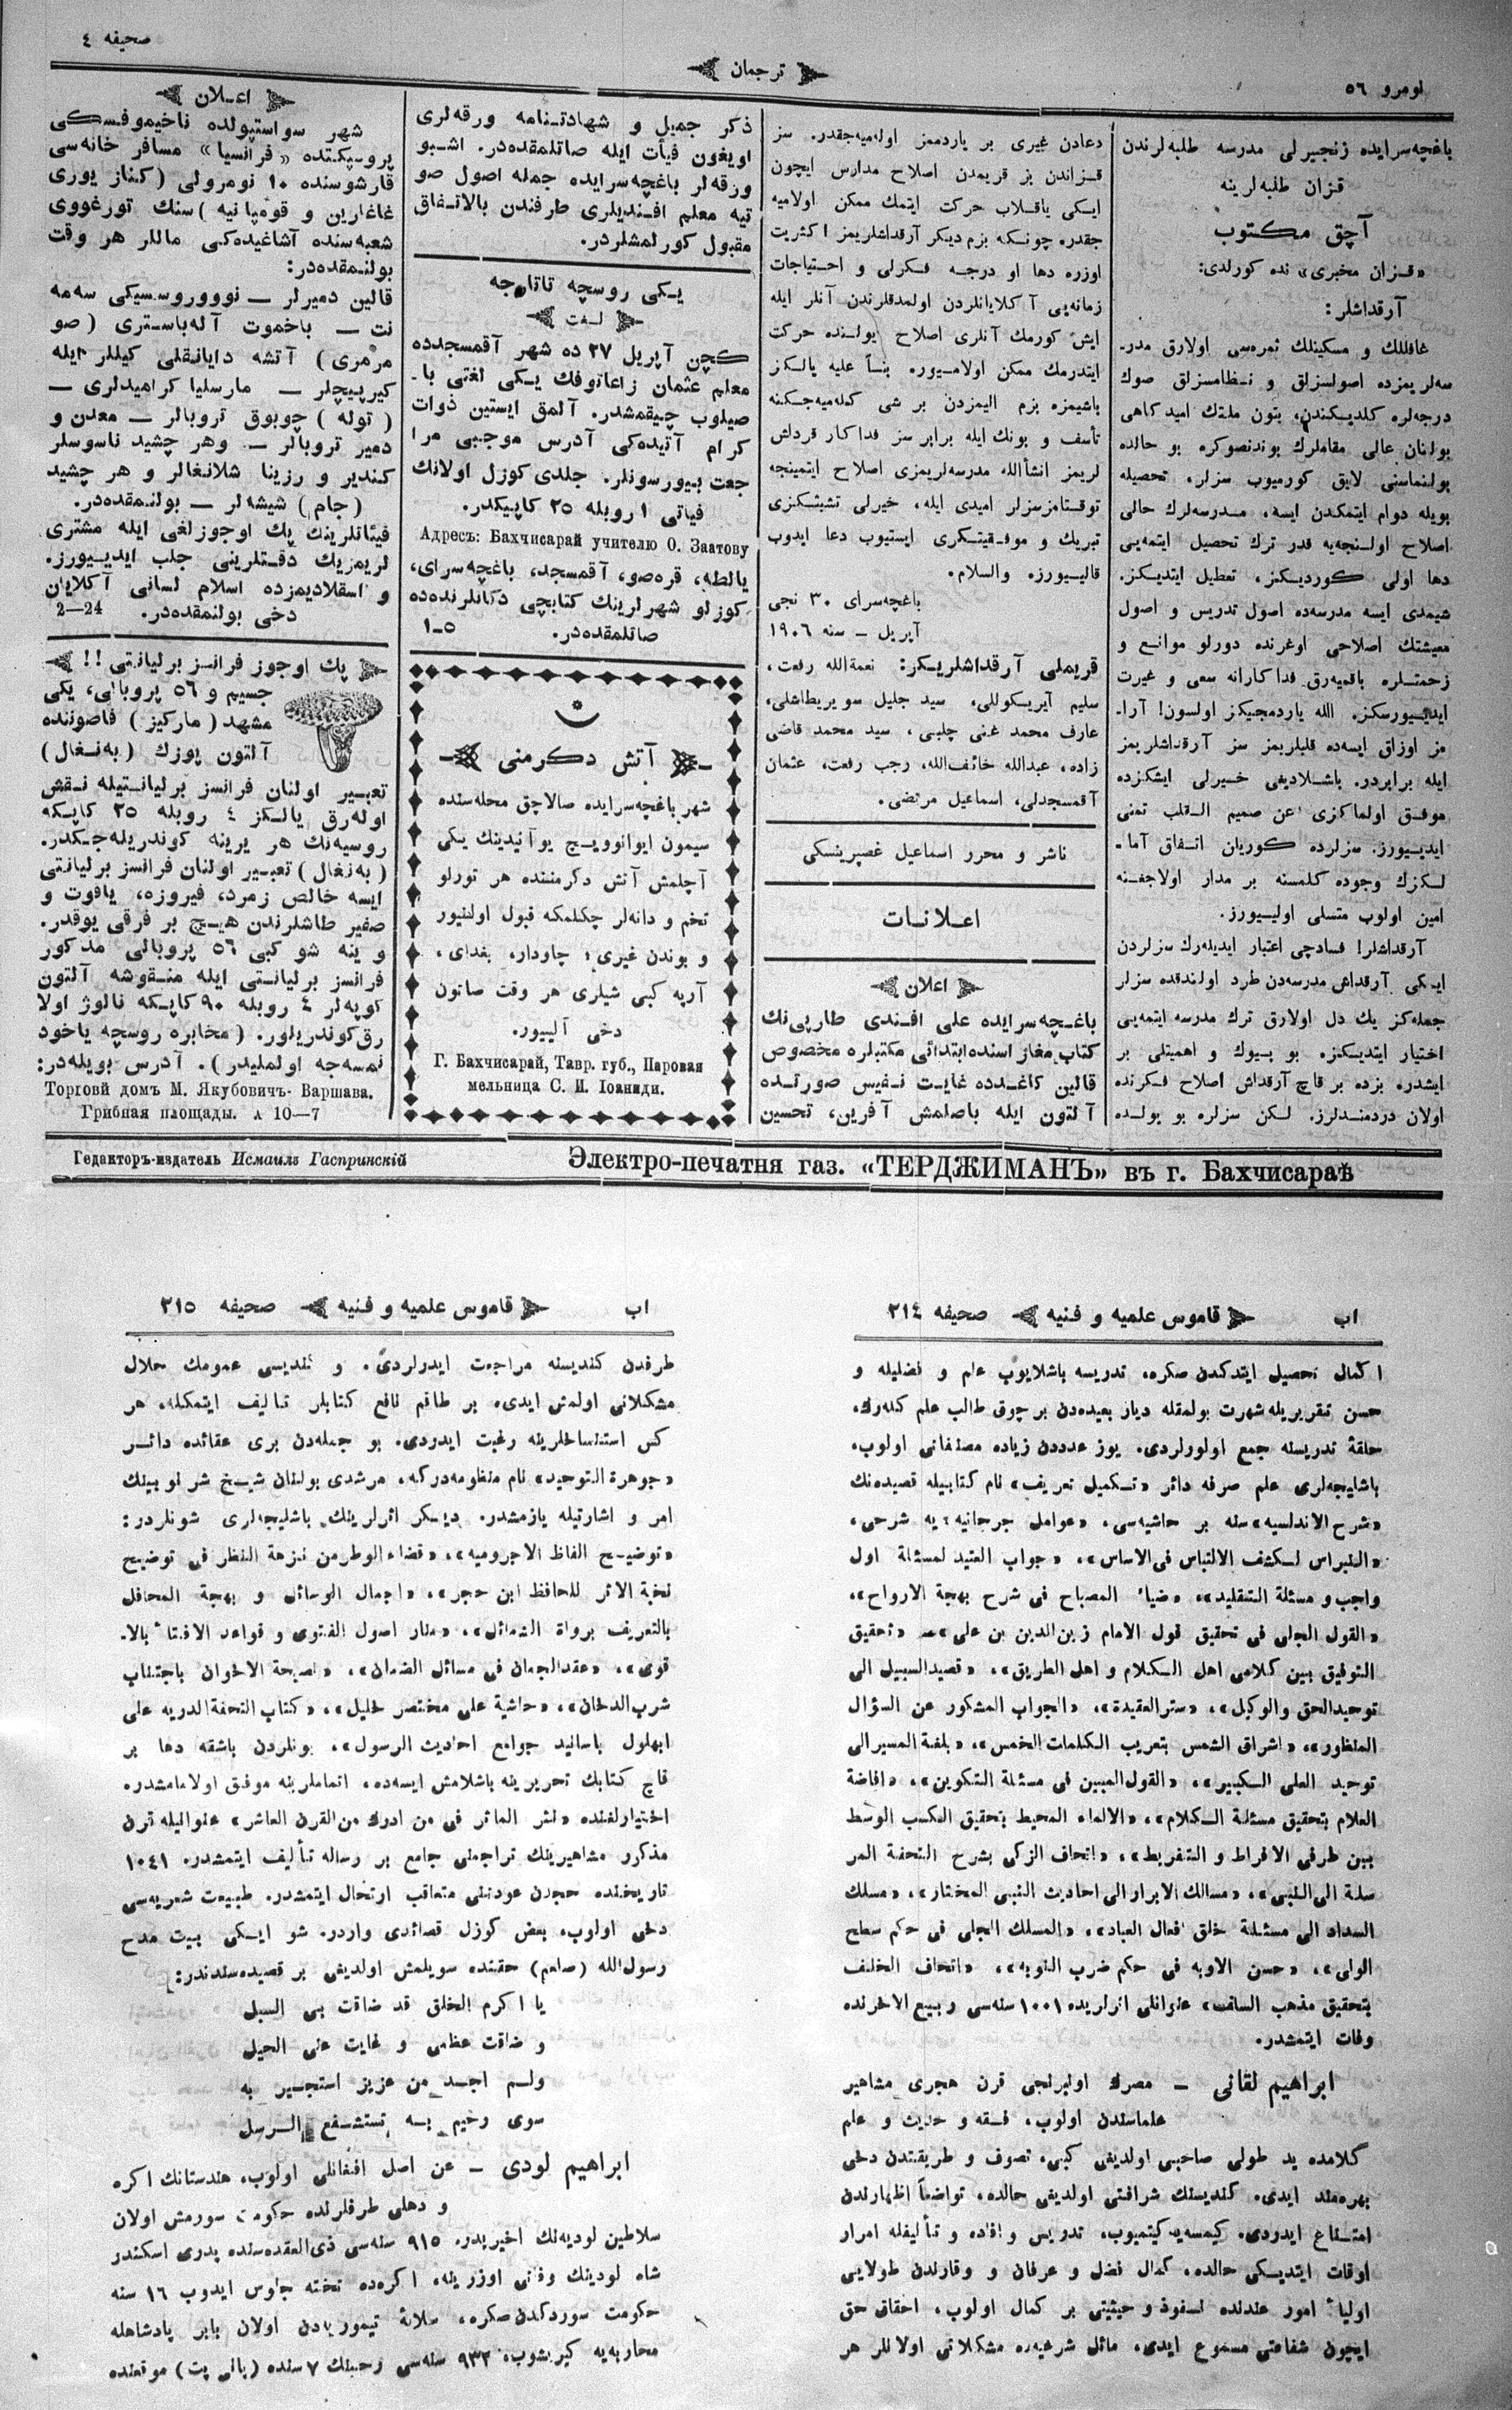 نومرو ٥٦
ترجمان
صحیفه ٤
باغچه‌سرایده زنجیرلی مدرسه طلبه‌لرندن
قزان طلبه‌لرینه
آچق مكتوب
«قزان مخبری» نده كورلدی:
آرقداشلر:
غافللك و مسكینلك ثمره‌سی اولارق مدر-
سه‌لریمزده اصولسزلق و نظامسزلق صوك
درجه‌لره كلدیكندن، بتون ملتك امید كاهی
بولنان عالی مقاملرك بوندنصوكره بو حالده
بولنماسنی لایق كورمیوب سزلر، تحصیله
بویله دوام ایتمكدن ایسه، مدرسه‌لرك حالی
اصلاح اولنجه‌یه قدر ترك تحصیل ایتمه‌یی
دها اولی كوردیكز، تعطیل ایتدیكز.
شیمدی ایسه مدرسه‌ده اصول تدریس و اصول
معیشتك اصلاحی اوغرنده دورلو موانع و
زحمتلره باقمیه‌رق فداكارانه سعی و غیرت
ایدیورسكز. الله یاردمجیكز اولسون! آرا-
مز اوزاق ایسه‌ده قلبلریمز سز آرقداشلریمز
ایله برابردر. باشلادیغی خیرلی ایشكزده
موفق اولماكزی عن صمیم القلب تمنی
ایدیورز. سزلرده كوریان اتفاق آما-
لكزك وجوده كلمسنه بر مدار اولاجغنه
امین اولوب متسلی اولیورز.
آرقداشلر! فسادچی اعتبار ایدیله‌رك سزلردن
ایكی آرقداش مدرسه‌دن طرد اولندقده سزلر
جمله‌كز یك دل اولارق ترك مدرسه ایتمه‌یی
اختیار ایتدیكز. بو بیوك و اهمیتلی بر
ایشدر. بزده بر قاچ آرقداش اصلاح فكرنده
اولان دردمندلرز. لكن سزلره بو یولده
دعادن غیری بر یاردممز اوله‌میه‌جقدر. سز
قزاندن بز قریمدن اصلاح مدارس ایچون
ایكی یاقلاب حركت ایتمك ممكن اولامیه
جقدر. چونكه بزم دیكر آرقداشلریمز اكثریت
اوزره دها او درجه فكرلی و احتیاجات
زمانه‌یی آكلایانلردن اولمدقلرندن آنلر ایله
ایش كورمك آنلری اصلاح یولنده حركت
ایتدرمك ممكن اولامیور. بنأ علیه یالكز
باشیمزه بزم الیمزدن بر شی كله‌میه‌جكنه
تأسف و بونك ایله برابر سز فداكار قرداش
لریمز انشأالله مدرسه‌لریمزی اصلاح ایتمینجه
توقتامزسزلر امیدی ایله، خیرلی تشبثكزی
تبریك و موفقیتكزی ایستیوب دعا ایدوب
قالیورز. والسلام.
باغچه‌سرای ٣٠ نجی
آپریل — سنه ١٩٠٦
قریملی آرقداشلریكز: نعمة‌الله رفعت،
عارف محمد غنی چلبی، سید محمد قاضی
زاده، عبدالله خائف‌الله، رجب رفعت، عثمان
آقمسجدلی، اسماعیل مرتضی.
ناشر و محرر اسماعیل غصپرینسكی
اعلانات
اعلان
باغچه‌سرایده علی افندی طارپی‌نك
كتاب مغازاسنده ابتدائی مكتبلره مخصوص
قالین كاغدده غایت نفیس صورتده
آلتون ایله باصلمش آفرین، تحسین
ذكر جمیل و شهادتنامه ورقه‌لری
اویغون فیأت ایله صاتلمقده‌در. اشبو
ورقه‌لر باغچه‌سرایده جمله اصول صو
تیه معلم افندیلری طرفندن بالاتفاق
مقبول كورلمشلردر.
یكی روسچه تاتارجه
لغت
كچن آپریل ٢٧ ده شهر آقمسجدده
معلم عثمان زاعاتوفك یكی لغتی با-
صیلوب چیقمشدر. آلمق ایستین ذوات
كرام آتیده‌كی آدرس موجبی مرا
جعت بیورسونلر. جلدی كوزل اولانك
فیاتی ١ روبله ٢٥ كاپیكدر.
Адресъ: Бахчисарай учителю О. Заатову
یالطه، قره‌صو، آقمسجد، باغچه‌سرای،
كوزلو شهرلرینك كتابچی دكانلرنده‌ده
صاتلمقده‌در. ٥—١
آتش دكرمنی
شهر باغچه‌سرایده صالاچق محله‌سنده
سیمون ایوانوویچ یوآنیدینك یكی
آچلمش آتش دكرمننده هر تورلو
تخم و دانه‌لر چكلمكه قبول اولنیور
و بوندن غیری؛ چاودار، بغدای،
آرپه كبی شیلری هر وقت صاتون
دخی آلییور.
Г. Бахчисарай, Тавр. губ., Паровая
мельница С. И. Іоаниди.
اعلان
شهر سواستپولده ناخیموفسكی
پروسپكتده «فرانسیا» مسافر خانه‌سی
قارشوسنده ١٠ نومرولی (كناز یوری
غاغارین و قومپانیه) سنك تورغووی
شعبه‌سنده آشاغیده‌كی ماللر هر وقت
بولنمقده‌در:
قالین دمیرلر — نوووروسسیكی سه‌مه
نت — باخموت آله‌باستری (صو
مرمری) آتشه دایانقلی كیللر ایله
كیرپیچلر — مارسلیا كرامیدلری —
(توله) چویوق تروبالر — معدن و
دمیر تروبالر — وهر چشید ناسوسلر
كندیر و رزینا شلانغالر و هر چشید
(جام) شیشه‌لر — بولنمقده‌در.
فیئاتلرینك پك اوجوزلغی ایله مشتری
لریمزیك دقتلرینی جلب ایدییورز.
و اسقلادیمزده اسلام لسانی آكلایان
دخی بولنمقده‌در. 2—24
پك اوجوز فرانسز برلیانتی!!
جسیم و ٥٦ پروبالی، یكی
مشهد (ماركیز) فاصوننده
آلتون یوزك (به‌نغال)
تعبیر اولنان فرانسز برلیانتیله نقش
اوله‌رق یالكز ٤ روبله ٢٥ كاپكه
روسیه‌نك هر یرینه كوندریله‌جكدر.
(به‌نغال) تعبیر اولنان فرانسز برلیانتی
ایسه خالص زمرد، فیروزه، یاقوت و
صفیر طاشلرندن هیچ بر فرقی یوقدر.
و ینه شو كبی ٥٦ پروبالی مذكور
فرانسز برلیانتی ایله منقوشه آلتون
كوپه‌لر ٤ روبله ٩٠ كاپكه نالوژ اولا
رق كوندریلور. (مخابره روسچه یاخود
نمسه‌جه اولملیدر). آدرس بویله‌در:
Торговй домъ М. Якубовичъ- Варшава.
Грибная площады. д 10—7
Гедакторъ-издатель Исмаилъ Гаспринскій
Электро-печатня газ. «ТЕРДЖИМАНЪ» въ г. Бахчисараѣ
اب
قاموس علمیه و فنیه
صحیفه ٢١٤
اكمال تحصیل ایتدكدن صكره، تدریسه باشلایوب علم و فضلیله و
حسن تقریریله شهرت بولمقله دیار بعیده‌دن بر چوق طالب علم كله‌رك،
حلقۀ تدریسنه جمع اولورلردی. یوز عدددن زیاده مصنفاتی اولوب،
باشلیجه‌لری علم صرفه دائر «تكمیل تعریف» نام كتابیله قصیده‌نك
«شرح الاندلسیه» سنه بر حاشیه‌سی، «عوامل جرجانیه» یه شرحی،
«النبراس لكشف الالتباس فی الاساس»، «جواب العتید لمسئلة اول
واجب و مسئلة التقلید»، «ضیاء المصباح فی شرح بهجة الارواح»،
«القول الجلی فی تحقیق قول الامام زین‌الدین بن علی» «تحقیق
التوفیق بین كلامی اهل الكلام و اهل الطریق»، «قصیدالسبیل الی
توحیدالحق والوكیل»، «سترالعقیدة»، «الجواب المشكور عن السؤال
المنظور»، «اشراق الشمس بتعریب الكلمات الخمس»، «بلغة المسیرالی
توحید العلی الكبیر»، «القول‌المبین فی مسئلة التكوین»، «افاضة
العلام بتحقیق مسئلة الكلام»، «الالماء المحیط بتحقیق الكسب الوسط
بین طرفی الافراط و التفریط»، «اتحاف الزكی بشرح التحفة المر
سلة الی النبی»، «مسالك الابرارالی احادیث النبی المختار»، «مسلك
السداد الی مسئلة خلق افعال العباد»، «المسلك الجلی فی حكم سطح
الولی»، «حسن الاوبه فی حكم ضرب النوبه»، «اتحاف الخلف
بتحقیق مذهب السلف» عنوانلی اثرلریده ١٠٠١ سنه‌سی ربیع الاخرنده
وفات ایتمشدر.
ابراهیم لقانی — مصرك اونبرنجی قرن هجری مشاهیر
علماسندن اولوب، فقه و حدیث و علم
كلامده ید طولی صاحبی اولدیغی كبی، تصوف و طریقتدن دخی
بهره‌مند ایدی. كندیسنك شرافتی اولدیغی حالده، تواضعاً اظهارلندن
امتناع ایدردی. كیمسه‌یه كیتمیوب، تدریس و افاده و تألیفله امرار
اوقات ایتدیكی حالده، كمال فضل و عرفان و وقارلندن طولایی
اولیاء امور عندنده نفوذ و حیثیتی بر كمال اولوب، احقاق حق
ایچون شفاعتی مسموع ایدی. مائل شرعیه‌ده مشكلاتی اولانلر هر
اب
قاموس علمیه و فنیه
صحیفه ٢١٥
طرفدن كندیسنه مراجعت ایدرلردی. و كندیسی عمومك حلال
مشكلاتی اولمش ایدی. بر طاقم نافع كتابلر تالیف ایتمكله، هر
كس استنساخلرینه رغبت ایدردی. بو جمله‌دن بری عقائده دائر
«جوهرة التوحید» نام منظومه‌دركه، مرشدی بولنان شیخ شرنوبینك
امر و اشارتیله یازمشدر. دیكر اثرلرینك باشلیجه‌لری شونلردر:
«توضیح الفاظ الاجرومیه»، «قضاء الوطر من نزهة النظر فی توضیح
نخبة الاثر للحافظ ابن حجر»، «اجمال الوسائل و بهجة المحافل
بالتعریف برواة الشمائل»، «منار اصول الفتوی و قواعد الافتاء بالا-
قوی»، «عقدالجمان فی مسائل الضمان»، «نصیحة الاخوان باجتناب
شرب‌الدخان»، «حاشیة علی مختصر خلیل»، «كتاب التحفة الدریه علی
ابهلول باسانید جوامع احادیث الرسول»، بونلردن باشقه دها بر
قاچ كتابك تحریرینه باشلامش ایسه‌ده، اتماملرینه موفق اولامامشدر.
اختیارلغنده «نثر الماثر فی من ادرك من القرن العاشر» عنوانیله قرن
مذكرو مشاهیرینك تراجمنی جامع بر رساله تألیف ایتمشدر. ١٠٤١
تاریخنده حجدن عودتنی متعاقب ارتحال ایتمشدر. طبیعت شعریه‌سی
دخی اولوب، بعض كوزل قصائدی واردر. شو ایكی بیت مدح
رسول‌الله (صلعم) حقنده سویلمش اولدیغی بر قصیده‌سندندر:
یا اكرم الخلق قد ضاقت بی السبل
و ضاقت عظمی و غابت عنی الحیل
ولم اجد من عزیز استجیر به
سوی رخیم به تستشفع الرسل
ابراهیم لودی — عن اصل افغانلی اولوب، هندستانك اكره
و دهلی طرفلرنده حكومت سورمش اولان
سلاطین لودیه‌نك اخیریدر. ٩١٥ سنه‌سی ذی‌العقده‌سنده پدری اسكندر
شاه لودینك وفاتی اوزرینه، اكره‌ده تخته جلوس ایدوب ١٦ سنه
حكومت سوردكدن صكره، سلالۀ تیموریه‌دن اولان بابر پادشاهله
محاربه‌یه كیریشوب، ٩٣٢ سنه‌سی رجبنك ٧ سنده (پانی پت) موقعنده